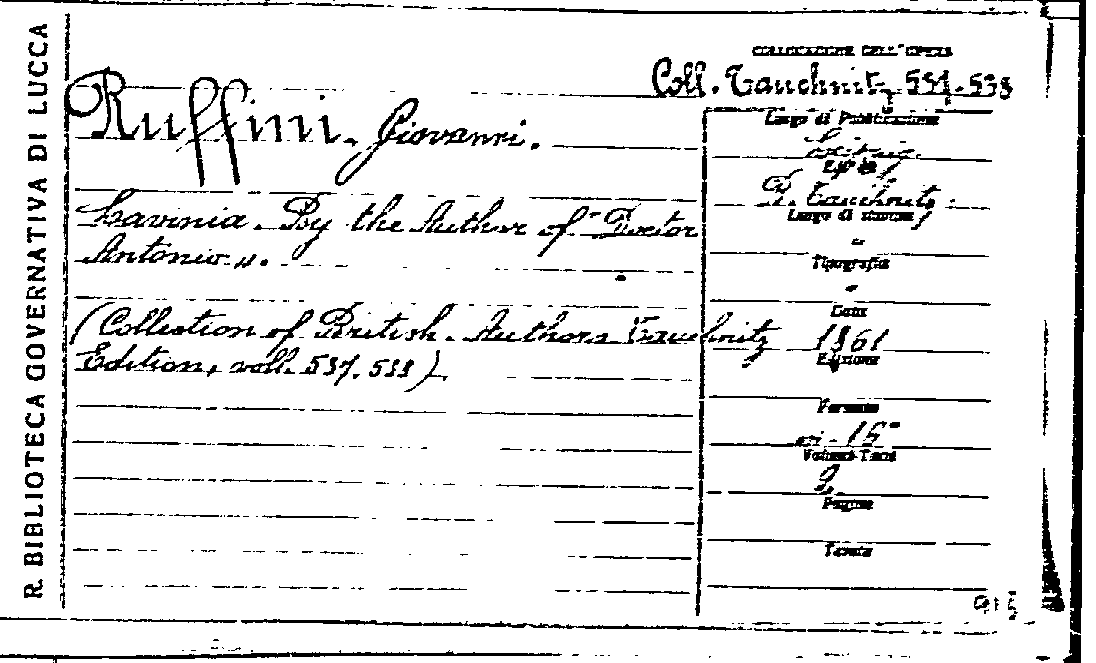 R. BIBLIOTECA GOVERNATIVA DI LUCCA
COLLOCAZIONE DELL'OPERA
Coll. Tauchnitz 537-538
Ruffini. Giovanni.
Lavinia. By the Author of "Doctor
Antonio".
(Collection of British. Authors Tauchnitz
Edition, voll. 537. 538)
Luogo di Pubblicazione
Leipzig.
Editore
B. Tauchnitz.
Luogo di stampa
"
Tipografia
"
Data
1861
Edizione
Formato
in-16°
Volumi-Tomi
2
Pagine
Tavole